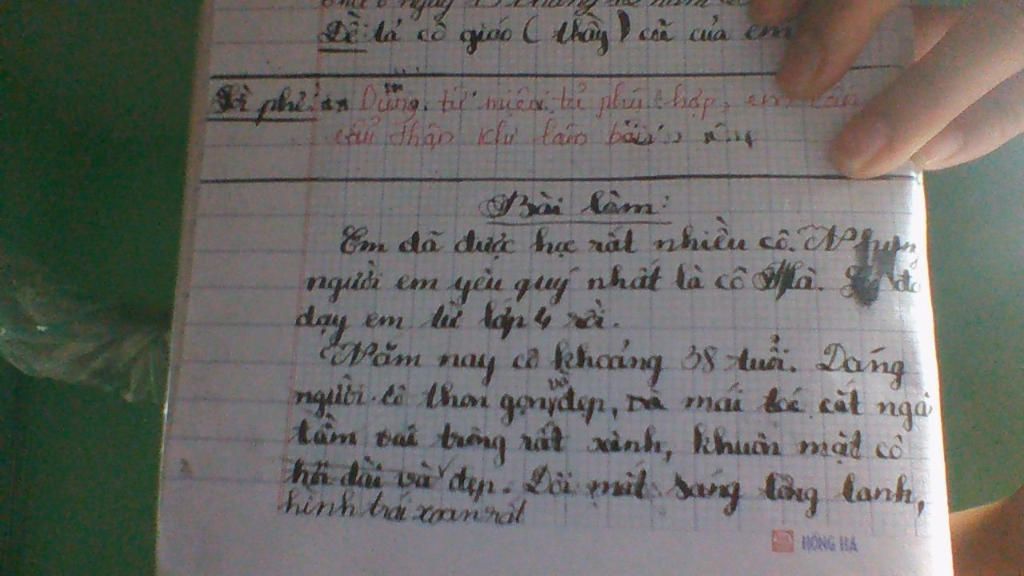 Đề tả cô giáo (thầy) cũ của em
Lời phê: Dùng từ miêu tả phù hợp, em cần
cẩn thận khi làm bài
Bài làm:
Em đã được học rất nhiều cô. Nhưng
người em yêu quý nhất là cô Hà. đã
dạy em từ lớp 4 rồi.
Năm nay cô khoảng 38 tuổi. Dáng
người cô thon gọn, và đẹp, mái tóc cắt ngà
tầm vai trông rất xinh, khuôn mặt cô
hơi dài và đẹp. Đôi mắt sáng lông lanh,
hình trái xoan rất
HỒNG HÀ